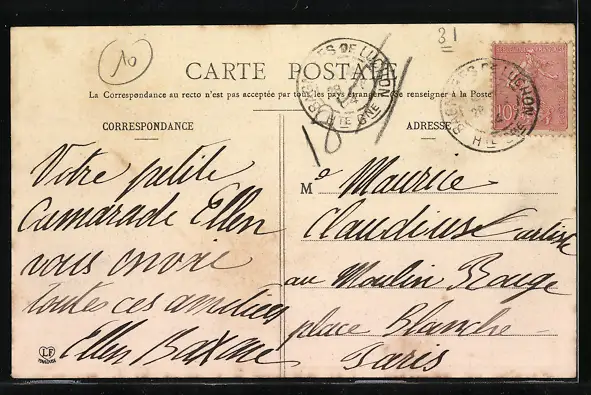 10
31
CARTE POSTALE
La Correspondance au recto n'est pas acceptée par tous les pays étrangers (Se renseigner à la Poste)
CORRESPONDANCE
ADRESSE
BAGNÈRES DE LUCHON
HTE GNE
BAGNÈRES DE LUCHON
HTE GNE
10
10
Votre petite
Camarade Ellen
vous envoie
toutes ces amitiés
Ellen
M
Maurice
Claudius artiste
au Moulin Rouge
place Blanche
Paris
LF